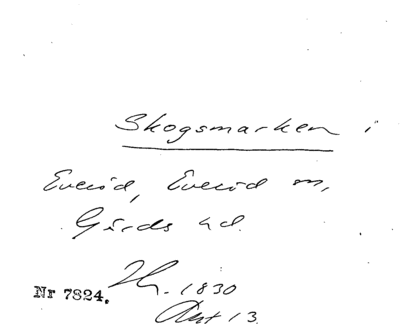 Skogsmarken i
Everöd, Everöd sn,
Gärds hd.
1830
Nr 7824.
Akt 13.